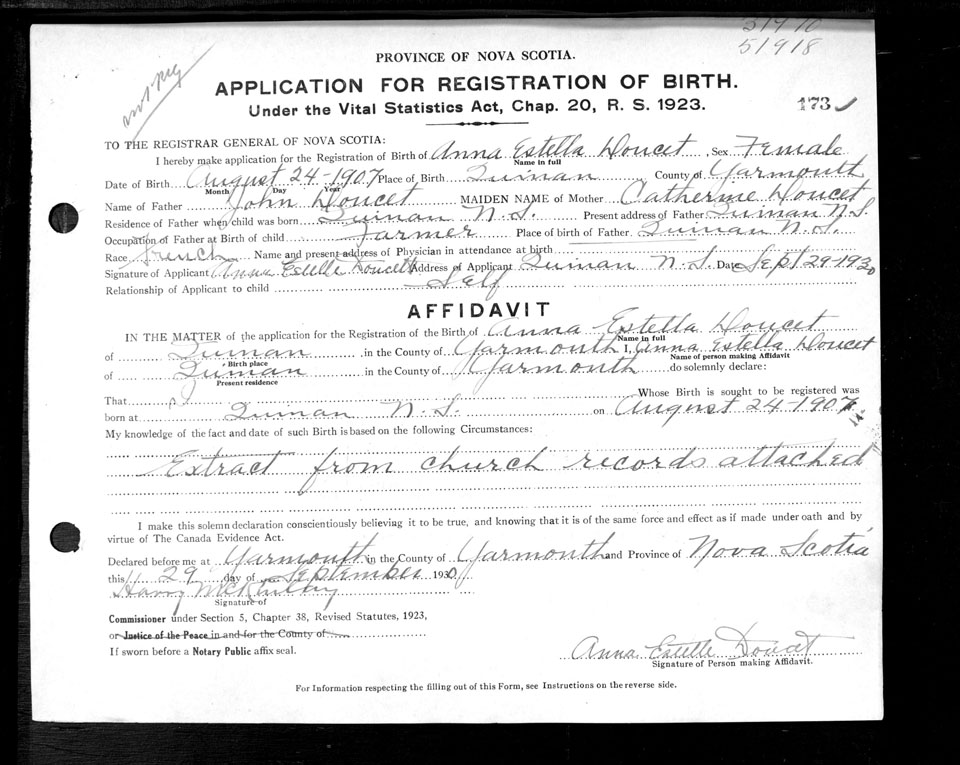 51918
PROVINCE OF NOVA SCOTIA.
APPLICATION FOR REGISTRATION OF BIRTH.
Under the Vital Statistics Act, Chap. 20, R. S. 1923.
173
TO THE REGISTRAR GENERAL OF NOVA SCOTIA:
I hereby make application for the Registration of Birth of Anna Estella Doucet, Sex Female
Name in full
Date of Birth August 24-1907 Place of Birth Quinan County of Yarmouth
Month Day Year
Name of Father John Doucet MAIDEN NAME of Mother Catherine Doucet
Residence of Father when child was born Quinan N.S. Present address of Father Quinan N.S.
Occupation of Father at Birth of child Farmer Place of birth of Father Quinan N.S.
Race French Name and present address of Physician in attendance at birth
Signature of Applicant Anna Estelle Doucett Address of Applicant Quinan N.S. Date Sept 29-1930
Relationship of Applicant to child Self
AFFIDAVIT
IN THE MATTER of the application for the Registration of the Birth of Anna Estella Doucet
Name in full
of Quinan in the County of Yarmouth I, Anna Estella Doucet
Birth place Name of person making Affidavit
of Quinan in the County of Yarmouth do solemnly declare:
Present residence
That Whose Birth is sought to be registered was
born at Quinan N.S. on August 24-1907
My knowledge of the fact and date of such Birth is based on the following Circumstances:
Extract from church records attached
I make this solemn declaration conscientiously believing it to be true, and knowing that it is of the same force and effect as if made under oath and by
virtue of The Canada Evidence Act.
Declared before me at Yarmouth in the County of Yarmouth and Province of Nova Scotia
this 29 day of September 1930
Harry
Signature of
Commissioner under Section 5, Chapter 38, Revised Statutes, 1923,
or Justice of the Peace in and for the County of
If sworn before a Notary Public affix seal.
Anna Estelle Doucet
Signature of Person making Affidavit.
For Information respecting the filling out of this Form, see Instructions on the reverse side.